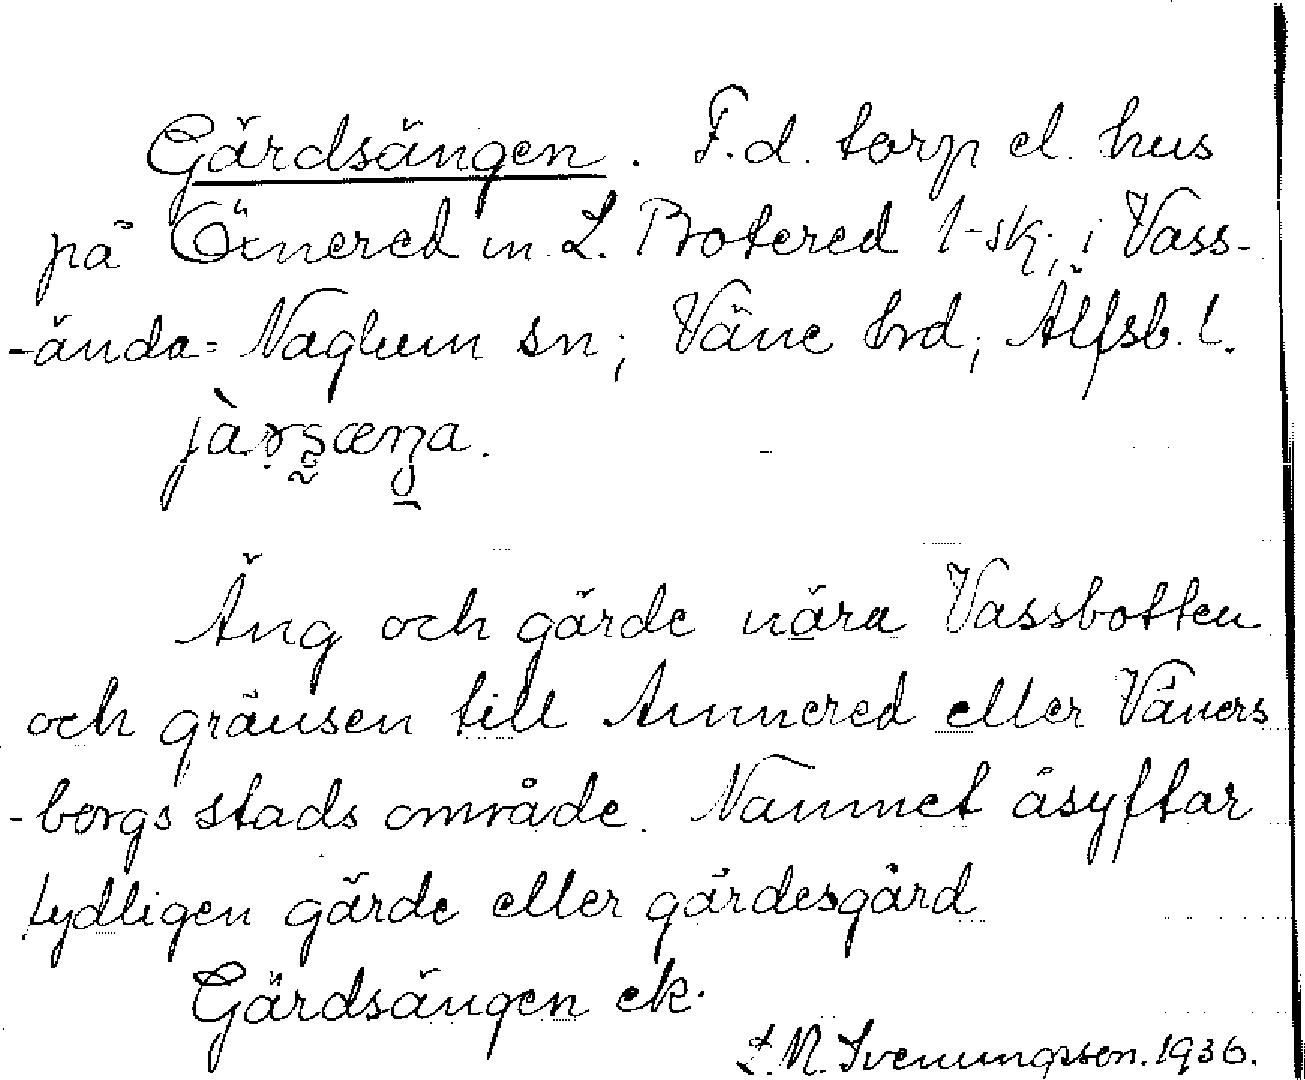 Gärdsängen. F.d. torp el. hus
på Öxnered m. L. Brotered 1-sk; i Vass-
-ända= Naglum sn; Väne hrd; Älfsb. l.
Äng och gärde nära Vassbotten
och gränsen till Annered eller Väners
-borgs stads område. Namnet åsyftar
tydligen gärde eller gärdesgård
Gärdsängen ek.
L.N. Svenungsson. 1936.